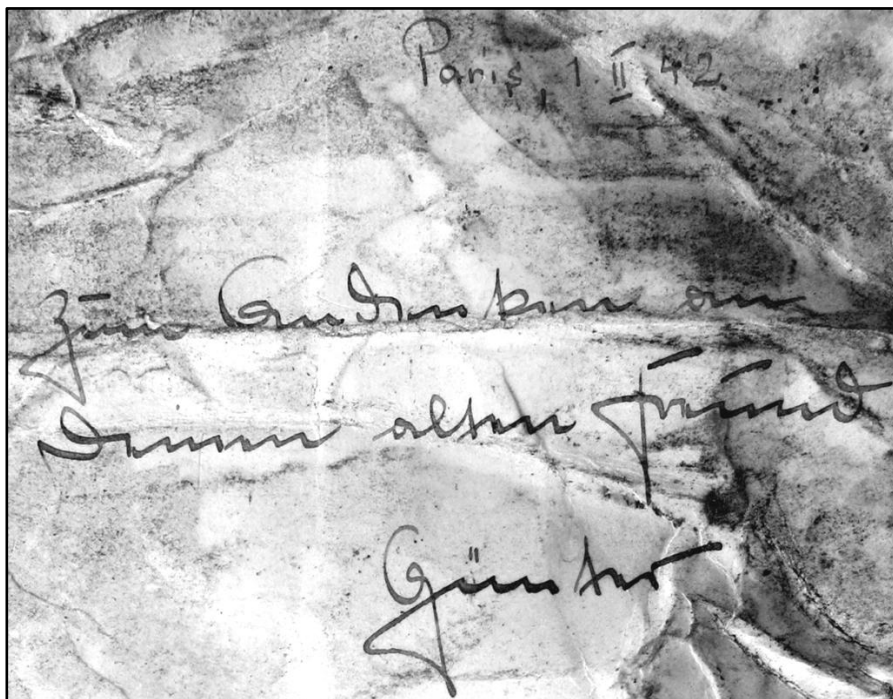 Paris, 1 II 42
Zum Andenken an
Deinen alten Freund
Günter